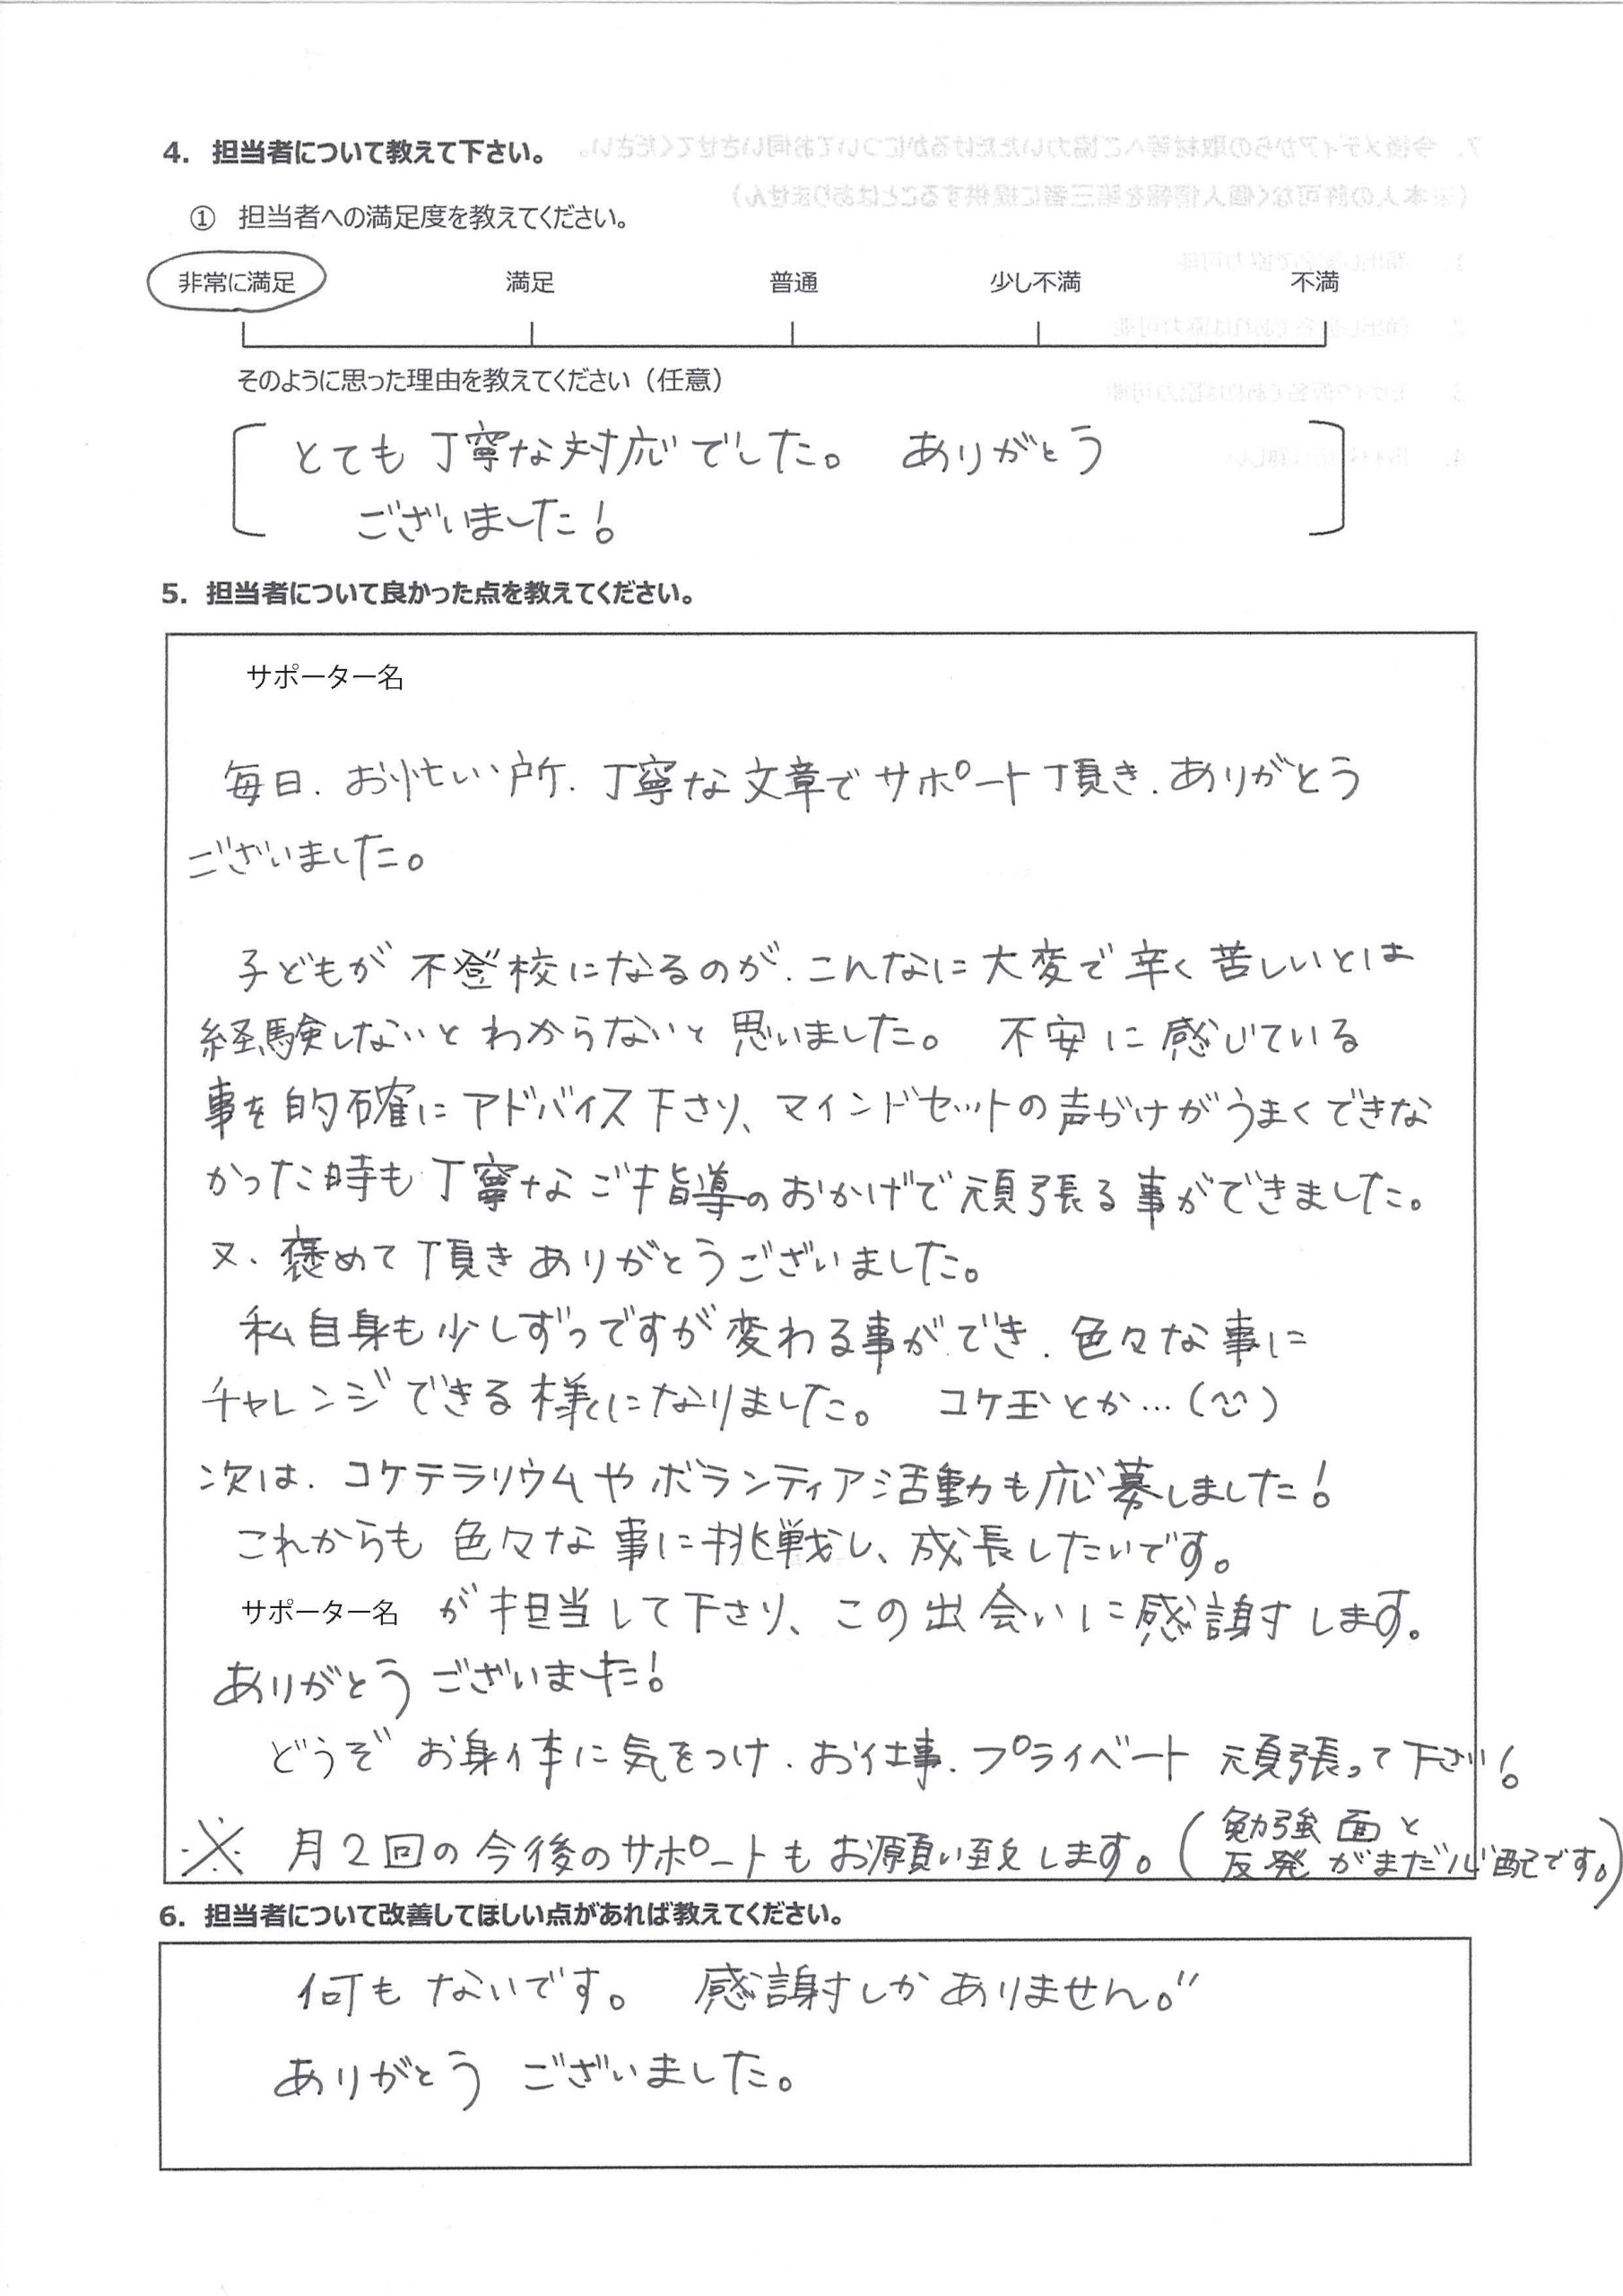 4. 担当者について教えて下さい。
① 担当者への満足度を教えてください。
非常に満足 満足 普通 少し不満 不満
そのように思った理由を教えてください（任意）
とても丁寧な対応でした。 ありがとう
ございました！
5. 担当者について良かった点を教えてください。
サポーター名
毎日、お忙しい所、丁寧な文章でサポート頂き、ありがとう
ございました。
子どもが不登校になるのが、こんなに大変で辛く苦しいとは
経験しないとわからないと思いました。 不安に感じている
事を的確にアドバイス下さり、マインドセットの声がけがうまくできな
かった時も丁寧なご指導のおかげで頑張る事ができました。
又、褒めて頂きありがとうございました。
私自身も少しずつですが変わる事ができ、色々な事に
チャレンジできる様になりました。 コケ玉とか…(^^)
次は、コケテラリウムやボランティア活動も応募しました！
これからも色々な事に挑戦し、成長したいです。
サポーター名 が担当して下さり、この出会いに感謝します。
ありがとうございました！
どうぞお身体に気をつけ、お仕事、プライベート頑張って下さい！
※ 月2回の今後のサポートもお願い致します。（勉強面と
反発がまだ心配です。）
6. 担当者について改善してほしい点があれば教えてください。
何もないです。 感謝しかありません。”
ありがとうございました。